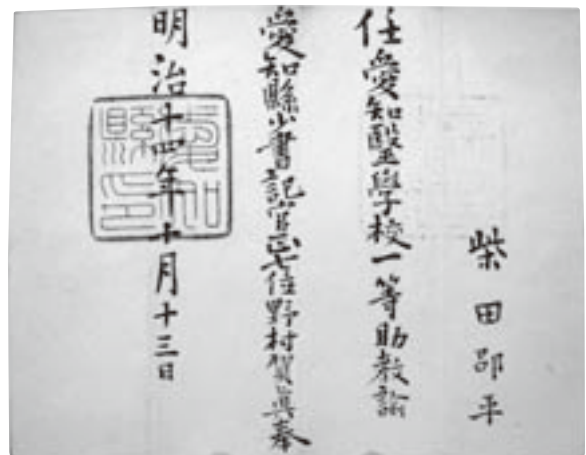 柴田邵平
任愛知醫學校一等助教諭
愛知縣少書記官正七位野村賀真奉
明治十四年十月十三日
愛知縣印